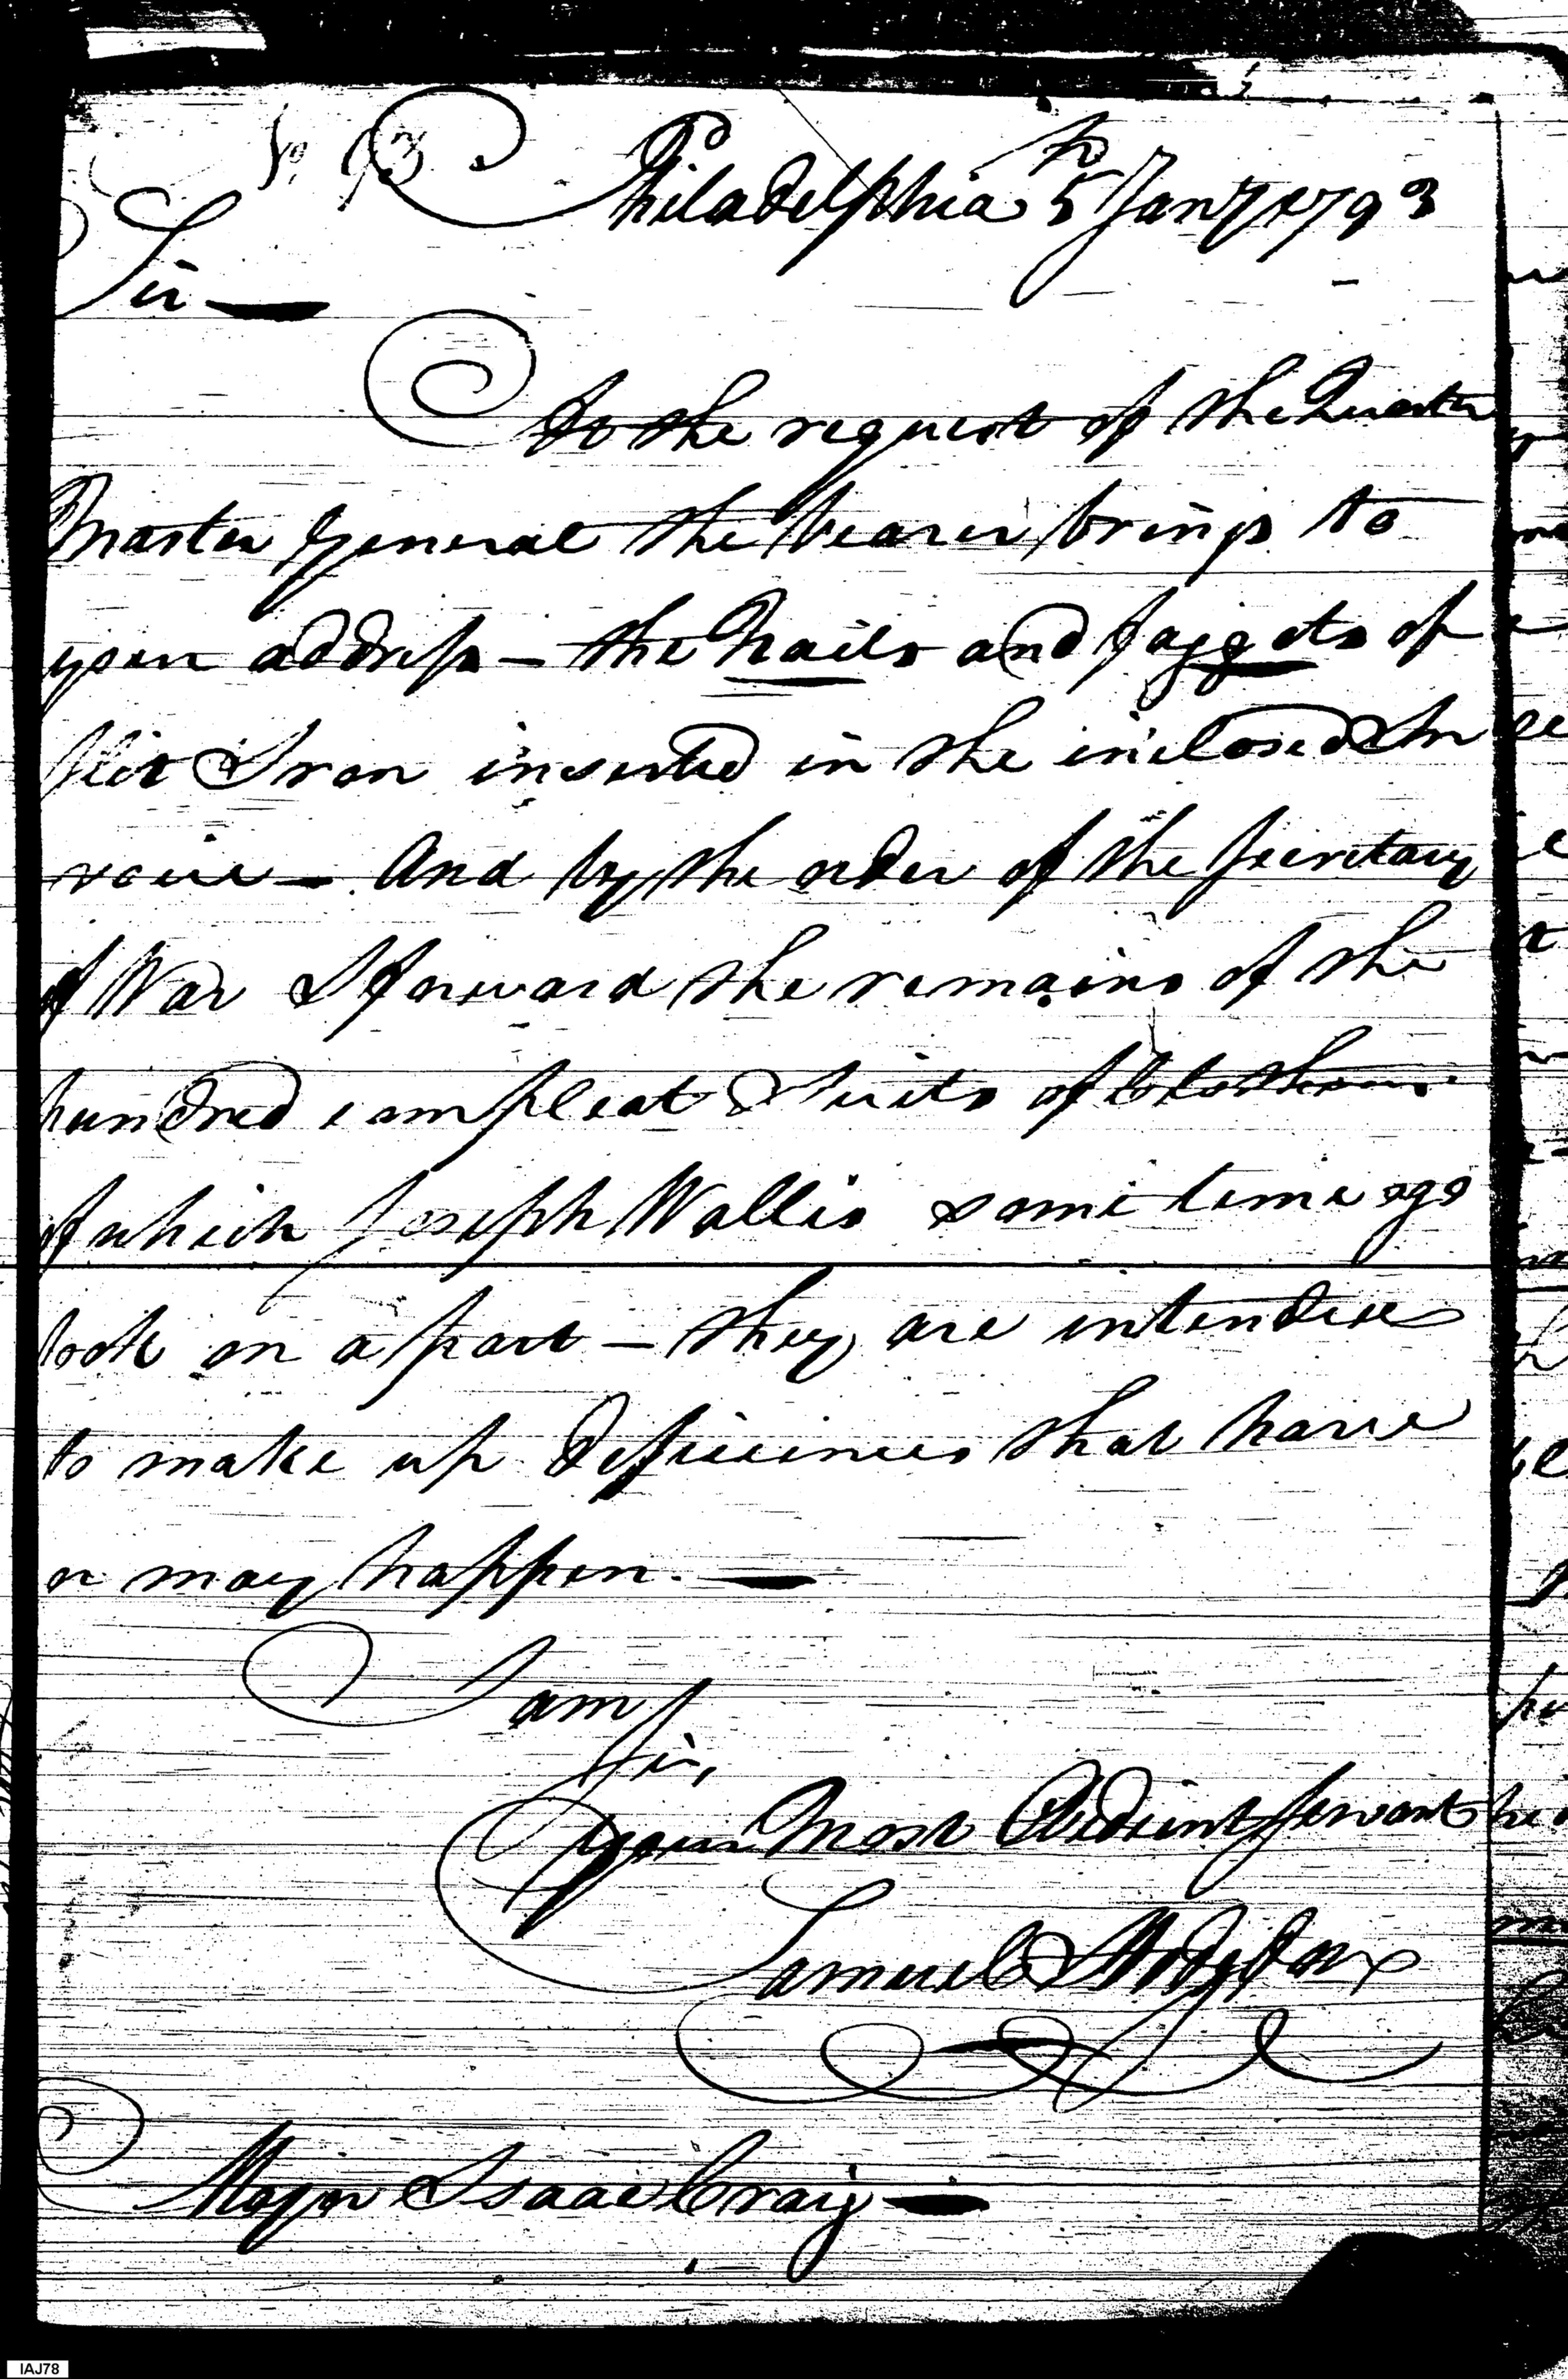 No. 93
Philadelphia 5th Jany 1793
Sir —
To the request of the Quarter
Master General the bearer brings to
your address — the Nails and faggots of
slit Iron inserted in the inclosed In
voice — And by the order of the Secretary
of War I forward the remains of the
hundred compleat Suits of Clothing
of which Joseph Wallis some time ago
took on a part — they are intended
to make up deficiencies that have
or may happen. —
I am
Sir,
your Most Obedient Servant
Samuel Hodgdon
Major Isaac Craig —
IAJ78